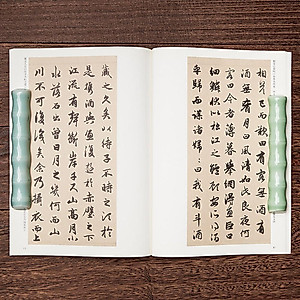 相答已而歎曰有客無酒有
酒無肴月白風清如此良夜何
客曰今者薄暮舉網得魚巨口
細鱗狀如松江之鱸顧安所得酒
乎歸而謀諸婦婦曰我有斗酒
藏之久矣以待子不時之需於
是攜酒與魚復遊於赤壁之下
江流有聲斷岸千尺山高月小
水落石出曾日月之幾何而江
山不可復識矣余乃攝衣而上